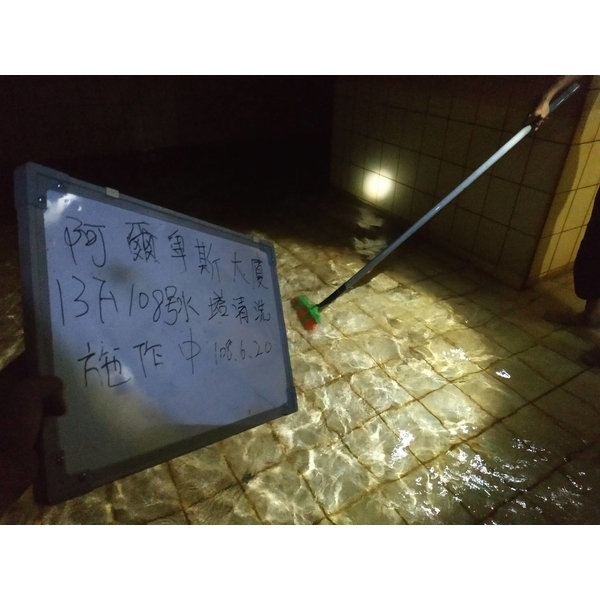 阿爾卑斯大廈
13F108號水塔清洗
施作中 108.6.20